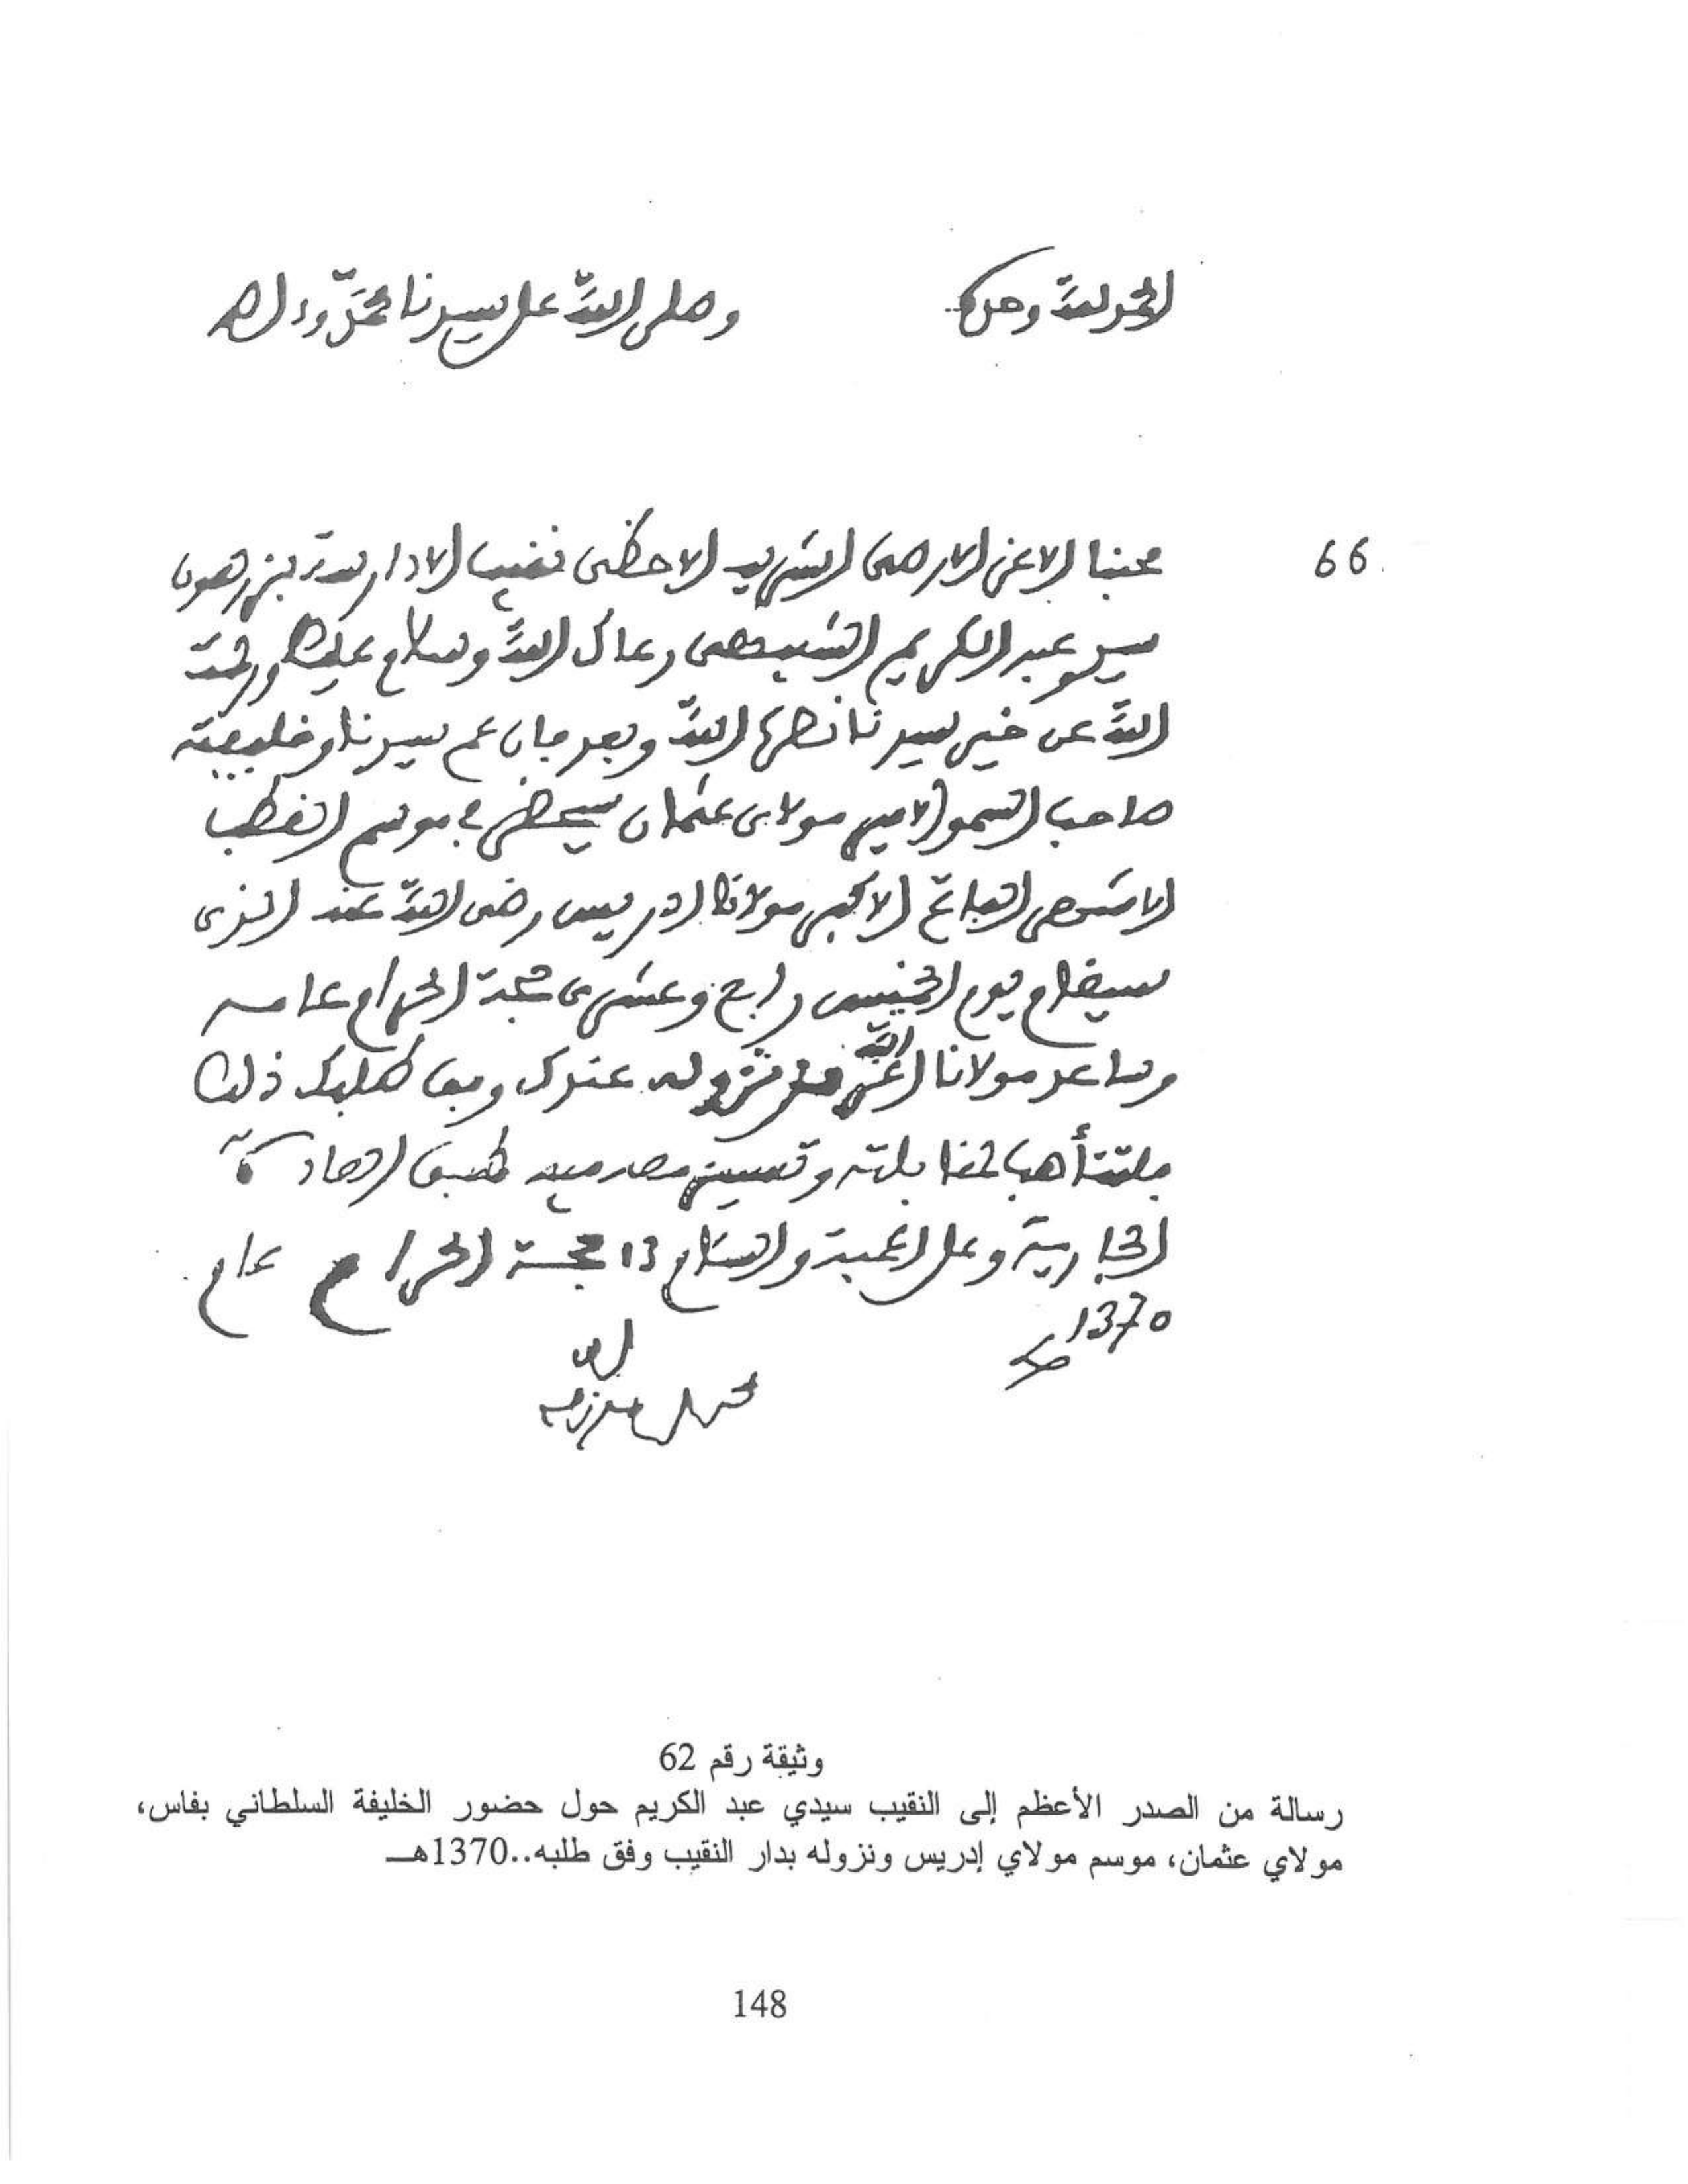 الحمد لله وحده وصلى الله على سيدنا محمد وءاله
66. محبنا الاعز الارضى الشريف الاحظى نقيب الادارسة بزرهون
سيدي عبد الكريم الشبيهي رعاك الله وسلام عليك ورحمة
الله عن خير سيدنا نصره الله وبعد فإن عم سيدنا وخليفته
صاحب السمو الامير مولاى عثمان سيحضر في موسم القطب
الاشهر الفاتح الاكبر مولانا ادريس رضى الله عنه الذى
سيقام يوم الخميس رابع وعشرى حجة الحرام عامه
وساعد مولانا اعزه الله على نزوله عندك وفق طلبك ذلك
فلتتأهب لمقابلته وتعيين فيه طبق العادة
الجارية وعلى المحبة والسلام 13 حجة الحرام عام
1370
محمد المقري
وثيقة رقم 62
رسالة من الصدر الأعظم إلى النقيب سيدي عبد الكريم حول حضور الخليفة السلطاني بفاس،
مولاي عثمان، موسم مولاي إدريس ونزوله بدار النقيب وفق طلبه..1370هـ
148